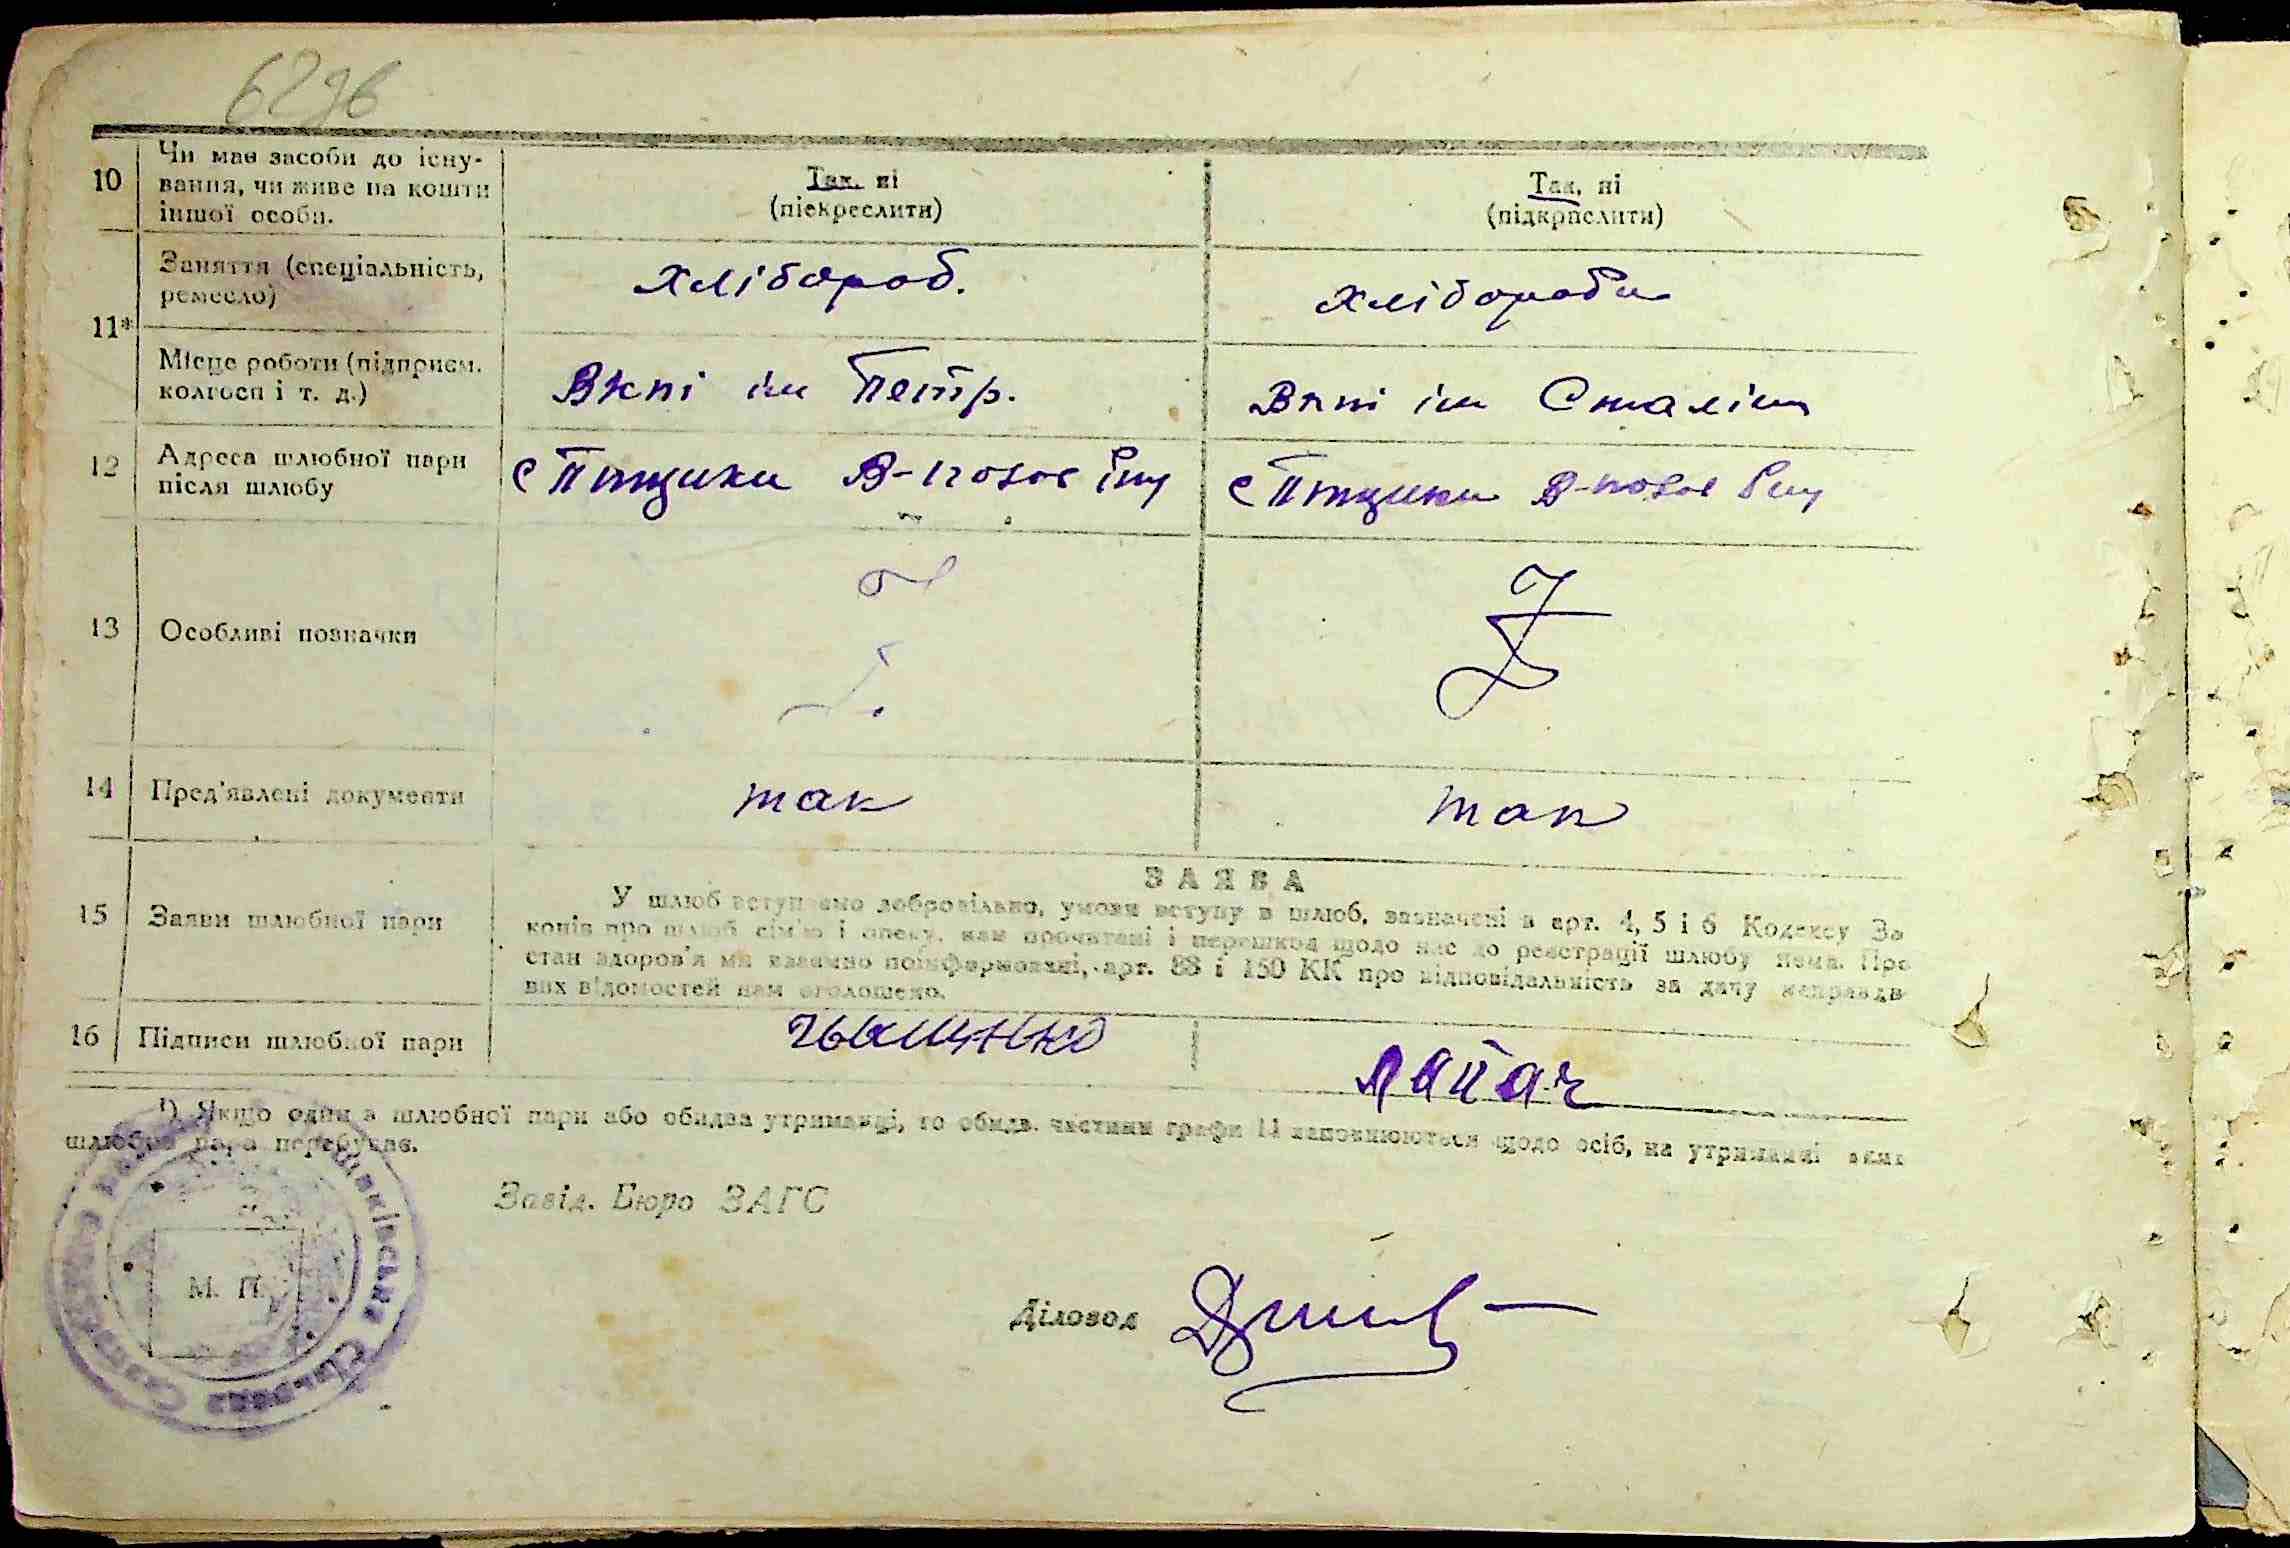 6296
10 Чи має засоби до існу-
вання, чи живе на кошти
іншої особи.
Так, ні
(піекреслити)
Так, ні
(підкрпслити)
11* Заняття (спеціальність,
ремесло)
Хлібороб.
Хлібороба
Місце роботи (підприєм.
колгосп і т. д.)
Вкпі ім Петр.
Вкпі ім Сталіна
12 Адреса шлюбної пари
після шлюбу
с Птщики
с Птщики
13 Особливі позначки
14 Пред'явлені документи
так
так
15 Заяви шлюбної пари
ЗАЯВА
У шлюб вступаємо добровільно, умови вступу в шлюб, зазначені в арт. 4, 5 і 6 Кодексу За
конів про шлюб сім'ю і опеку, нам прочитані і перешкод щодо нас до реєстрації шлюбу нема. Про
стан здоров'я ми взаємно поінформовані, арт. 88 і 150 КК про відповідальність за дачу неправдв
вих відомостей нам оголошено.
16 Підписи шлюбної пари
лапач
¹) Якщо один з шлюбної пари або обидва утриманці, то обидв. частини графи 11 заповнюються щодо осіб, на утриманні яких
шлюбна пара перебуває.
Завід. Бюро ЗАГС
М. П.
Діловод